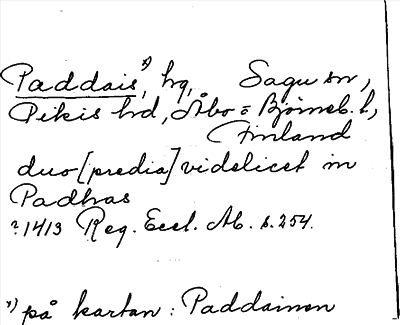 Paddais x), hg, Sagu sn,
Pikis hd, Åbo = Björneb. l,
Finland
duo [predia] videlicet in
Padhas
? 1413 Reg. Eccl. Ab. s. 254.
x) på kartan: Paddainen